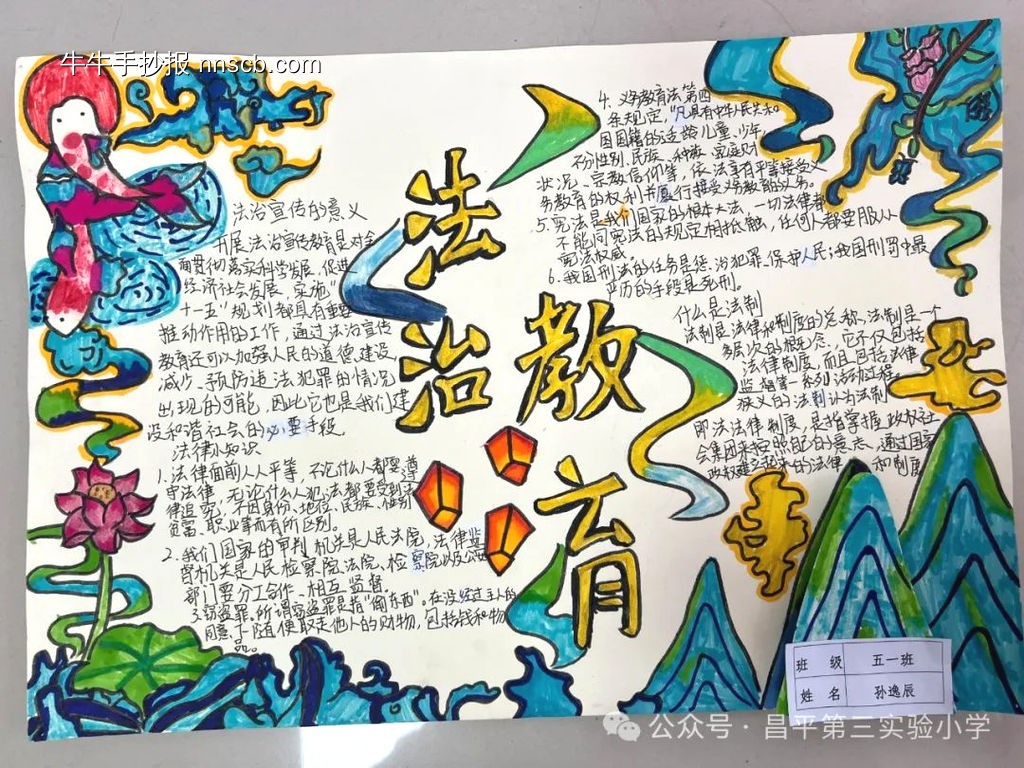 牛牛手抄报 nnscb.com
法治教育
法治宣传的意义
开展法治宣传教育是对全
面贯彻落实科学发展、促进
经济社会发展、实施"
十一五"规划都具有重要
推动作用的工作，通过法治宣传
教育还可以加强人民的道德建设，
减少、预防违法犯罪的情况
出现的可能，因此它也是我们建
设和谐社会的必要手段。
法律小知识
1.法律面前人人平等，不论什么人都要遵
守法律，无论什么人犯法都要受到法
律追究，不因身份、地位、民族、性别
贫富、职业等而有所区别。
2.我们国家的审判机关是人民法院，法律监
督机关是人民检察院，法院、检察院以及公安
部门要分工合作、相互监督。
3.窃盗罪，所谓窃盗罪是指"偷东西"。在没经过主人的
同意下随便取走他人的财物，包括钱和物
品。
4.义务教育法第四
条规定，"凡具有中华人民共和
国国籍的适龄儿童、少年，
不分性别、民族、种族、家庭财
状况、宗教信仰等，依法享有平等接受义
务教育的权利并履行接受义务教育的义务。
5.宪法是我们国家的根本大法，一切法律都
不能同宪法的规定相抵触，任何人都要服从
宪法权威。
6.我国刑法的任务是惩治犯罪，保护人民；我国刑罚中最
严历的手段是死刑。
什么是法制
法制是法律和制度的总称，法制是一个
多层次的概念，它不仅包括
法律制度，而且包括法律
监督等一系列活动过程。
狭义的法制认为法制
即法律制度，是指掌握政权社
会集团来按照自己的意志、通过国家
政权建立起来的法律和制度
班 级 五一班
姓 名 孙逸辰
公众号·昌平第三实验小学